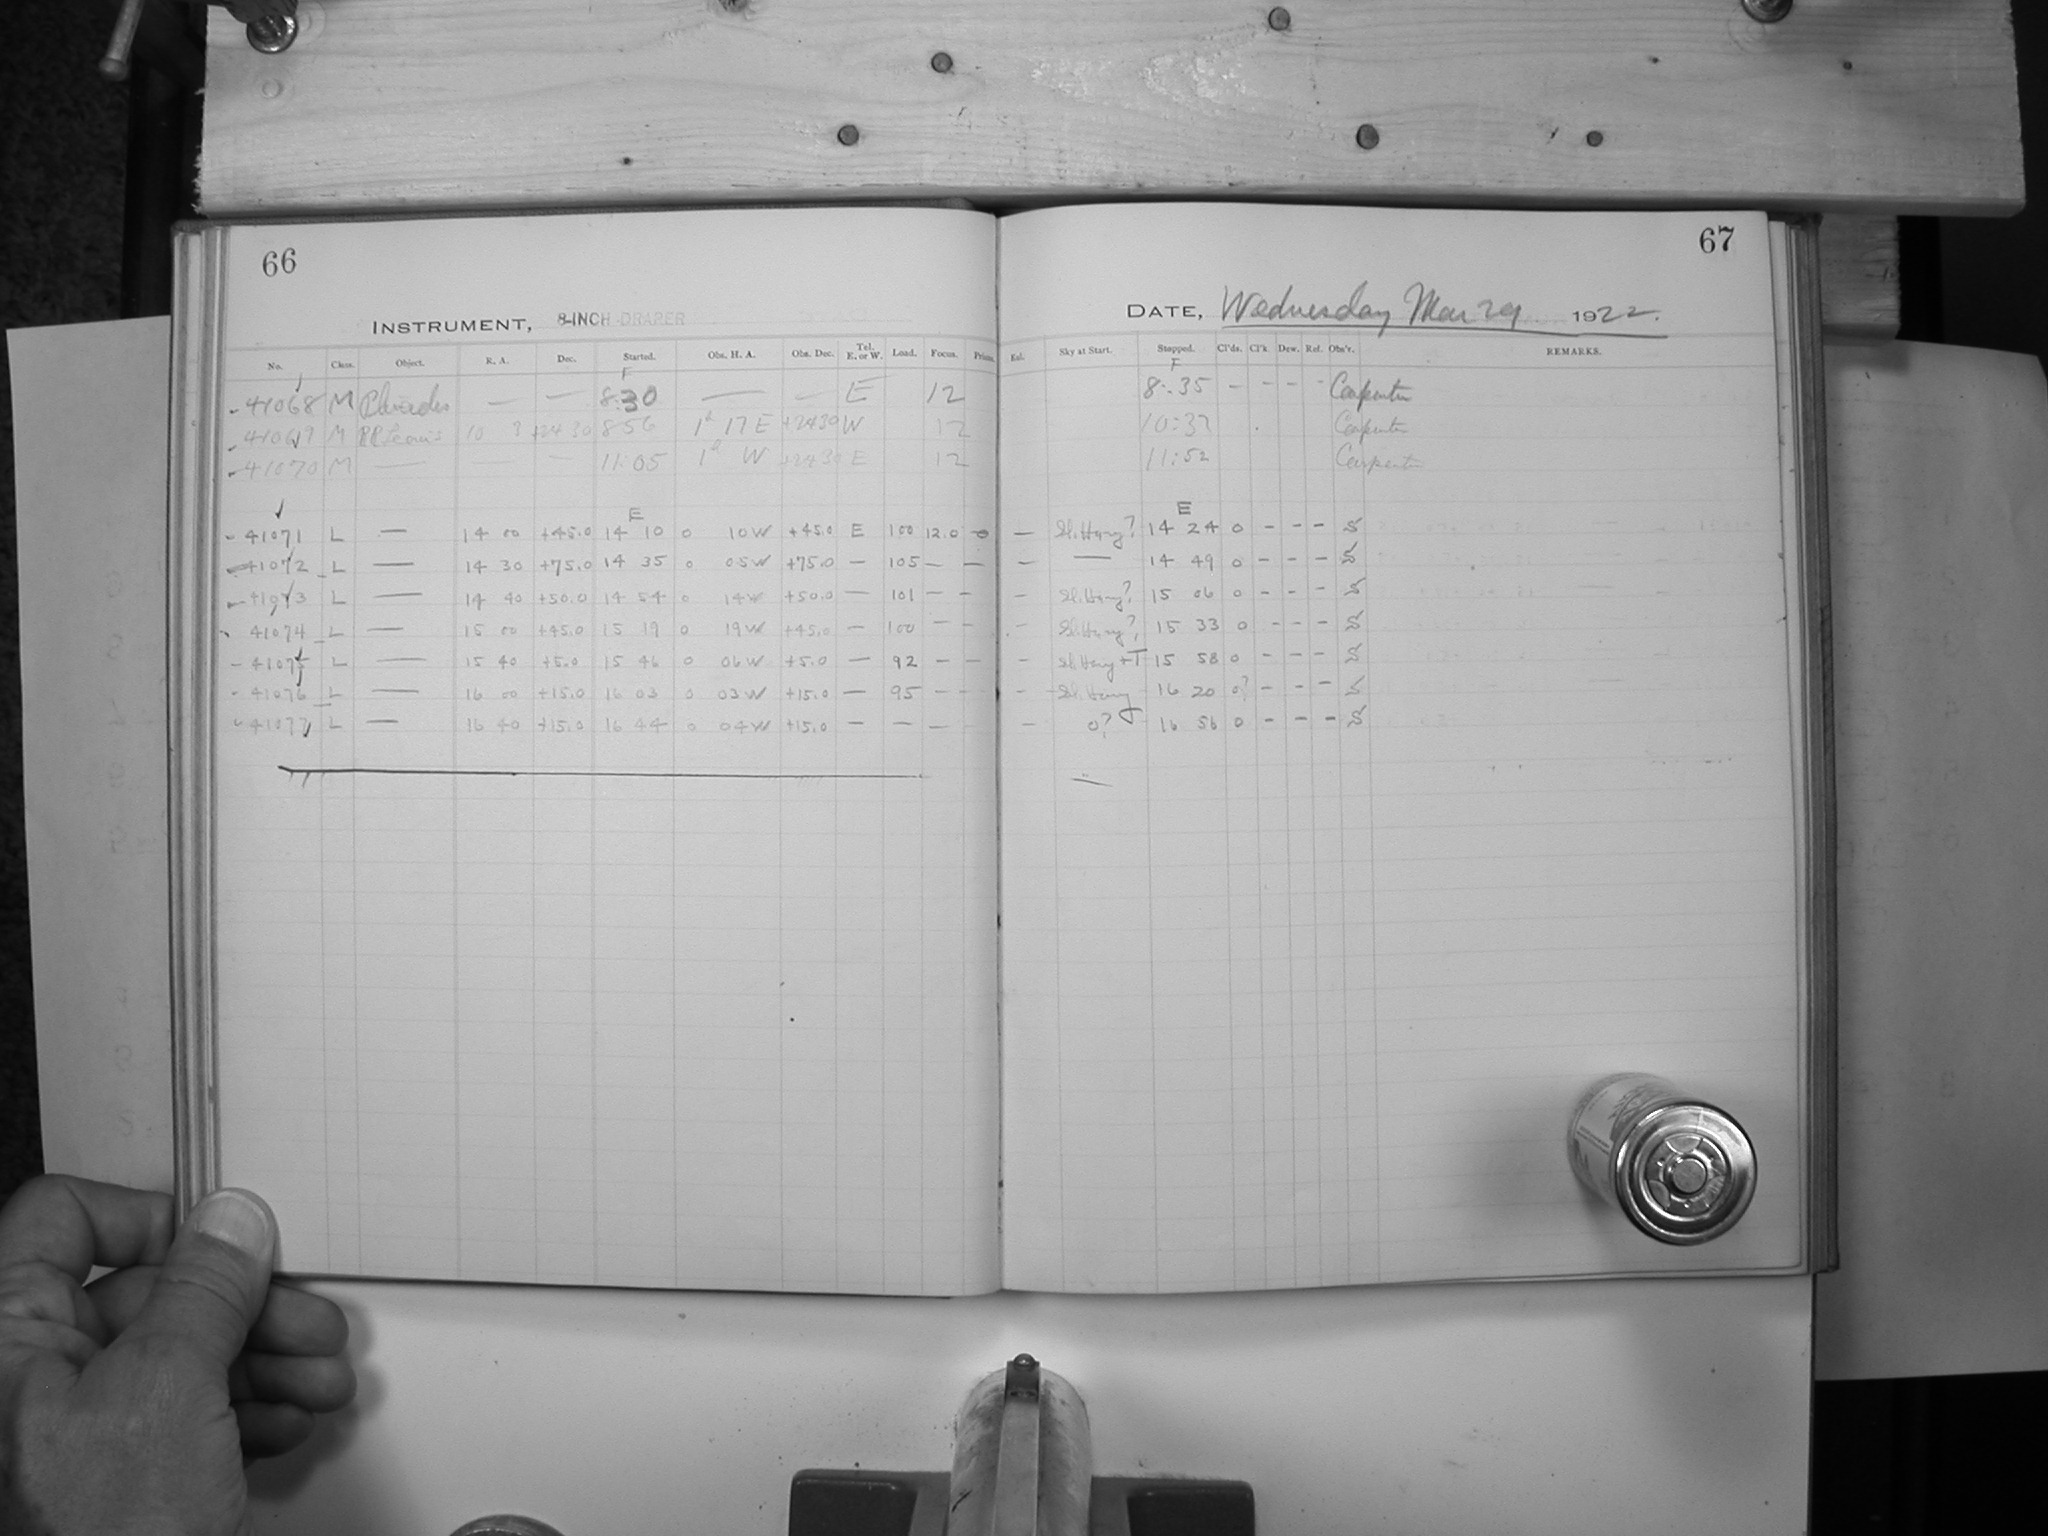 66
67
INSTRUMENT, 8-INCH DRAPER
DATE, Wednesday Mar 29 1922.
No. Class. Object. R. A. Dec. Started. Obs. H. A. Obs. Dec. Tel. E. or W. Load. Focus. Prism. Exl. Sky at Start. Stopped. Cl'ds. Cl'k. Dew. Ref. Obs'r. REMARKS.
F F
41068 M Pleiades — — 8:30 — — E 12 8:35 - - - - Carpenter
41069 M R.R. Leonis 10 3 +24 30 8 56 1h 17 E +2430 W 12 10:37 Carpenter
41070 M — — — 11:05 1h W +2430 E 12 11:52 Carpenter
E E
41071 L — 14 00 +45.0 14 10 0 10W +45.0 E 100 12.0 — Sl. Hazy? 14 24 0 - - - S
41072 L — 14 30 +75.0 14 35 0 05W +75.0 — 105 — — — — 14 49 0 - - - S
41073 L — 14 40 +50.0 14 54 0 14W +50.0 — 101 - - - Sl. Hazy? 15 06 0 - - - S
41074 L — 15 00 +45.0 15 19 0 19W +45.0 — 100 - - - Sl. Hazy? 15 33 0 - - - S
41075 L — 15 40 +5.0 15 46 0 06W +5.0 — 92 - - - Sl. Hazy + T 15 58 0 - - - S
41076 L — 16 00 +15.0 16 03 0 03W +15.0 — 95 - - - Sl. Hazy 16 20 0? - - - S
41077 L — 16 40 +15.0 16 44 0 04W +15.0 — — — — — 0? 16 56 0 - - - S